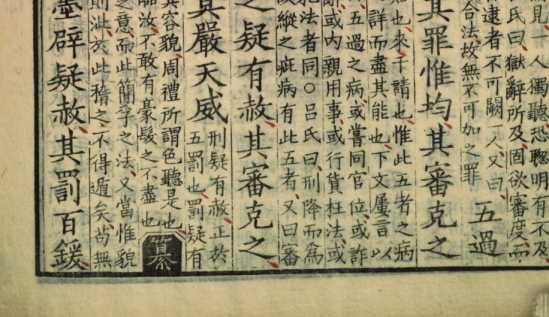 見一人獨聽恐聰明有不及
氏曰獄辭所及固欲審度而
逮者不可闕一人又曰
合法故無不可加之罪
五過
其罪惟均其審克之
也來干請也惟此五者之病
詳而盡其能也下文屢言以
五過之病或嘗同官位或詐
或內親用事或行貨枉法或
犯法者同○呂氏曰刑降而為
故縱之疵病有此五者又曰審
之疑有赦其審克之
刑疑有赦正於
五罰也罰疑有
具嚴天威
其容貌周禮所謂色聽是也
臨汝不敢有毫髮之不盡也
纂
之意而此簡孚之法又當惟貌
則泚於此稽之不得遁矣苟無
墨辟疑赦其罰百鍰